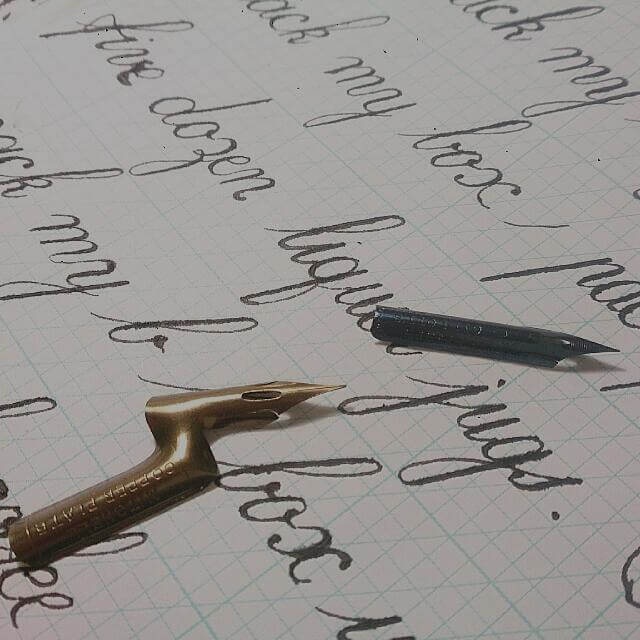 ack my
ack my box pac
five dozen liqu jugs.
ack my b. box
COPPER PLATE